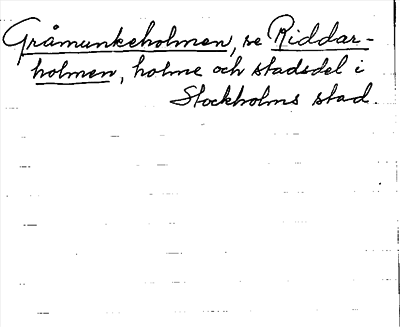 Gråmunkeholmen, se Riddar-
holmen, holme och stadsdel i
Stockholms stad.